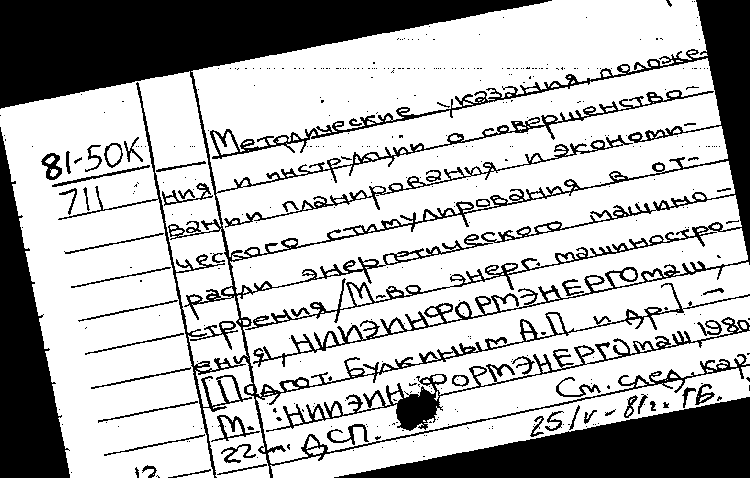 Методические указания, положе-
81-50К
711
ния и инструкции о совершенство-
вании планирования и экономи-
ческого стимулирования в от-
расли энергетического машино-
строения / М-во энерг. машиностро-
ения, НИИЭИНФОРМЭНЕРГОмаш;
[Подгот. Булкиным А.П. и др.]. —
М.: НИИЭИНФОРМЭНЕРГОмаш, 1980.
22 см. ДСП.
См. след. кар
25/V-81г. ГБ.